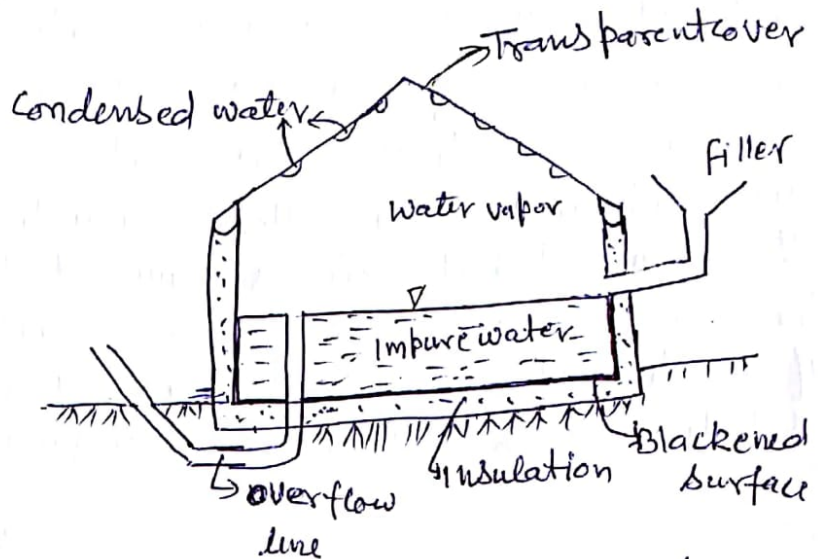 Transparent cover
Condensed water
filler
Water vapor
Impure water
Blackened
surface
Insulation
overflow
line